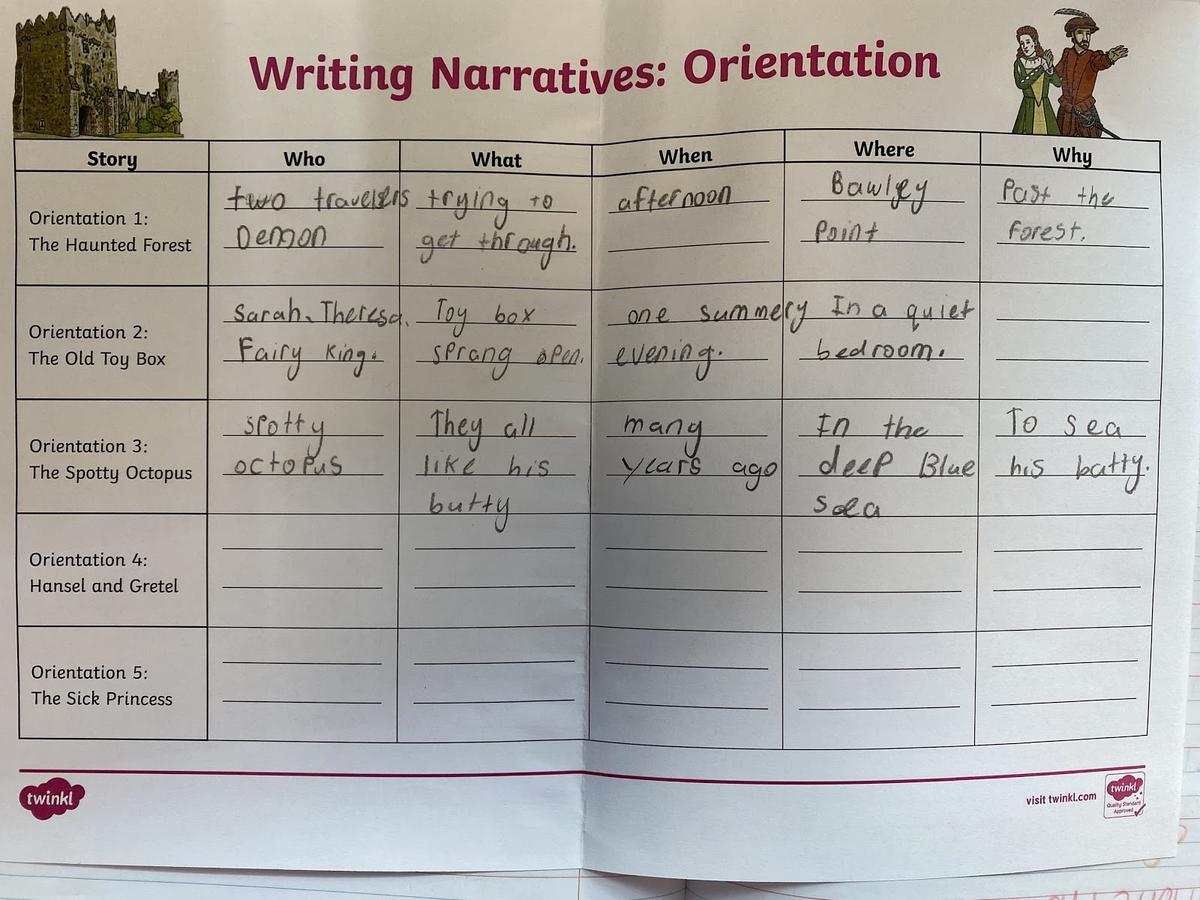 Writing Narratives: Orientation
Story Who What When Where Why
Orientation 1:
The Haunted Forest
two travelers
Demon
trying to
get through.
afternoon
Bawley
Point
Past the
Forest.
Orientation 2:
The Old Toy Box
Sarah. Theresa.
Fairy King.
Toy box
sprang open.
one summery
evening.
In a quiet
bedroom.
Orientation 3:
The Spotty Octopus
spotty
octopus
They all
like his
butty
many
years ago
In the
deep Blue
sea
To sea
his butty.
Orientation 4:
Hansel and Gretel
Orientation 5:
The Sick Princess
twinkl
visit twinkl.com
twinkl
Quality Standard
Approved